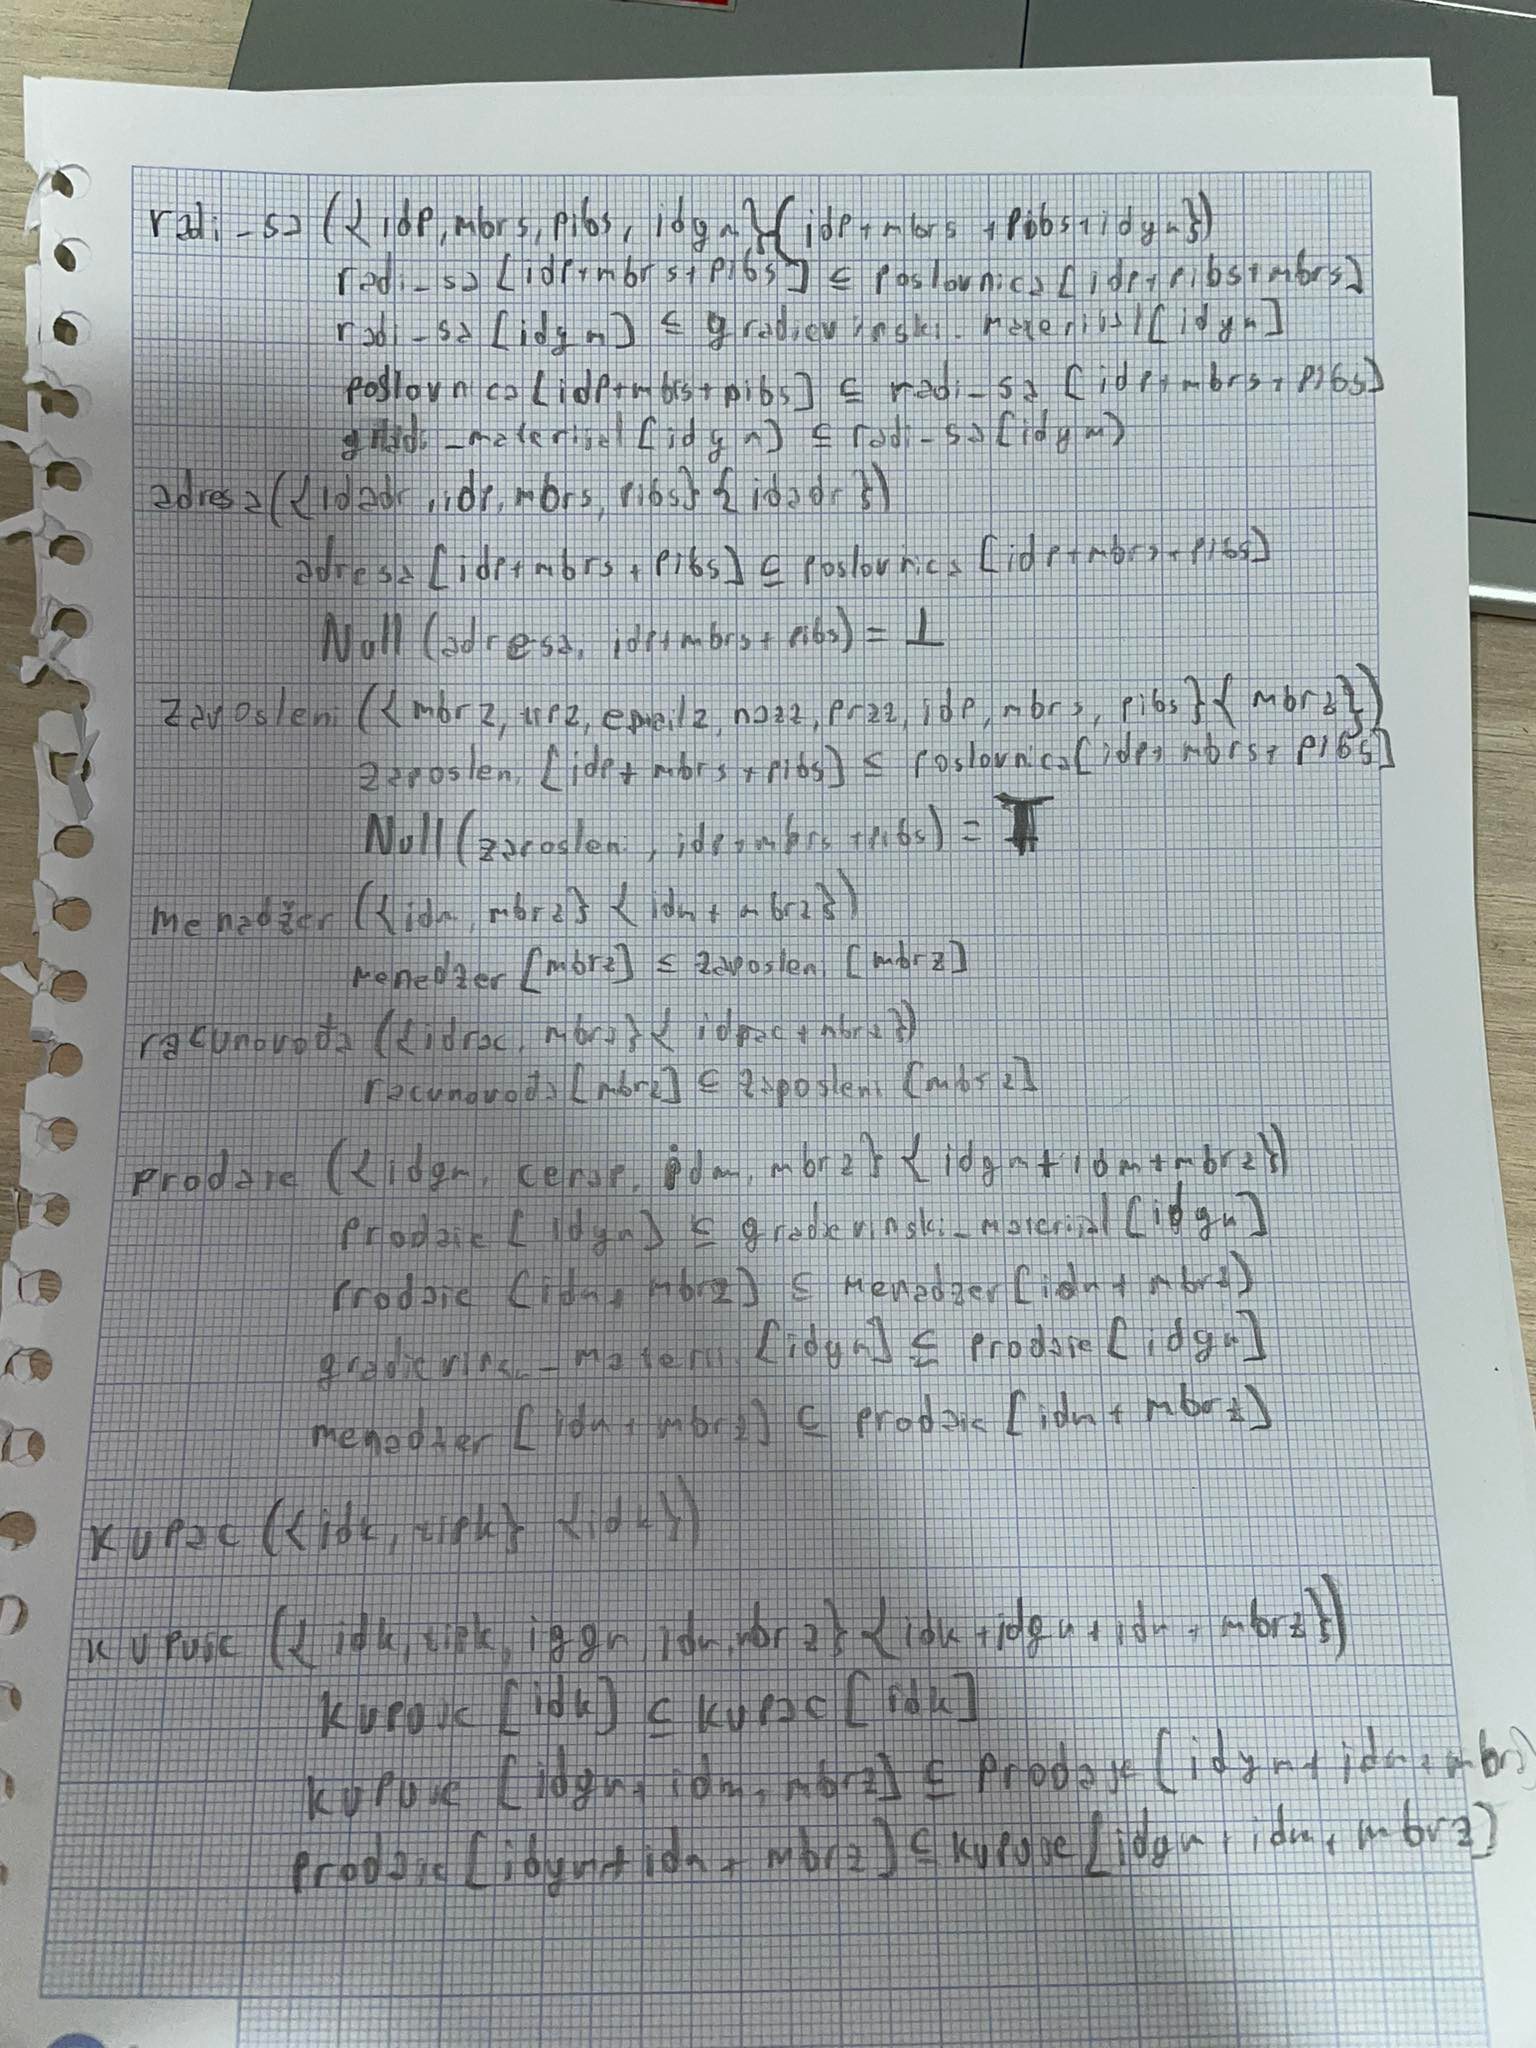 radi_sa ({idp, mbrs, pibs, idgm}{idp+mbrs+pibs+idgm})
radi_sa [idp+mbrs+pibs] ⊆ poslovnica [idp+pibs+mbrs]
radi_sa [idgm] ⊆ gradjevinski_materijal [idgm]
poslovnica [idp+mbrs+pibs] ⊆ radi_sa [idp+mbrs+pibs]
_materijal [idgm] ⊆ radi_sa [idgm]
adresa ({idadr, idp, mbrs, pibs}{idadr})
adresa [idp+mbrs+pibs] ⊆ poslovnica [idp+mbrs+pibs]
Null (adresa, idp+mbrs+pibs) = ⊥
zaposleni ({mbrz, tipz, emailz, nazz, przz, idp, mbrs, pibs}{mbrz})
zaposleni [idp+mbrs+pibs] ⊆ poslovnica [idp+mbrs+pibs]
Null (zaposleni, idp+mbrs+pibs) = T
menadžer ({idm, mbrz}{idm+mbrz})
menadzer [mbrz] ⊆ zaposleni [mbrz]
racunovođa ({idrac, mbrz}{idrac+mbrz})
racunovođa [mbrz] ⊆ zaposleni [mbrz]
prodaje ({idgm, cenap, idm, mbrz}{idgm+idm+mbrz})
prodaje [idgm] ⊆ gradjevinski_materijal [idgm]
prodaje [idm+mbrz] ⊆ menadzer [idm+mbrz]
[idgm] ⊆ prodaje [idgm]
menadzer [idm+mbrz] ⊆ prodaje [idm+mbrz]
kupac ({idk, tipk} {idk})
kupuje ({idk, tipk, iggm, idm, mbrz}{idk+idgm+idm+mbrz})
kupuje [idk] ⊆ kupac [idk]
kupuje [idgm+idm+mbrz] ⊆ prodaje [idgm+idm+mbrz]
prodaje [idgm+idm+mbrz] ⊆ kupuje [idgm+idm+mbrz]